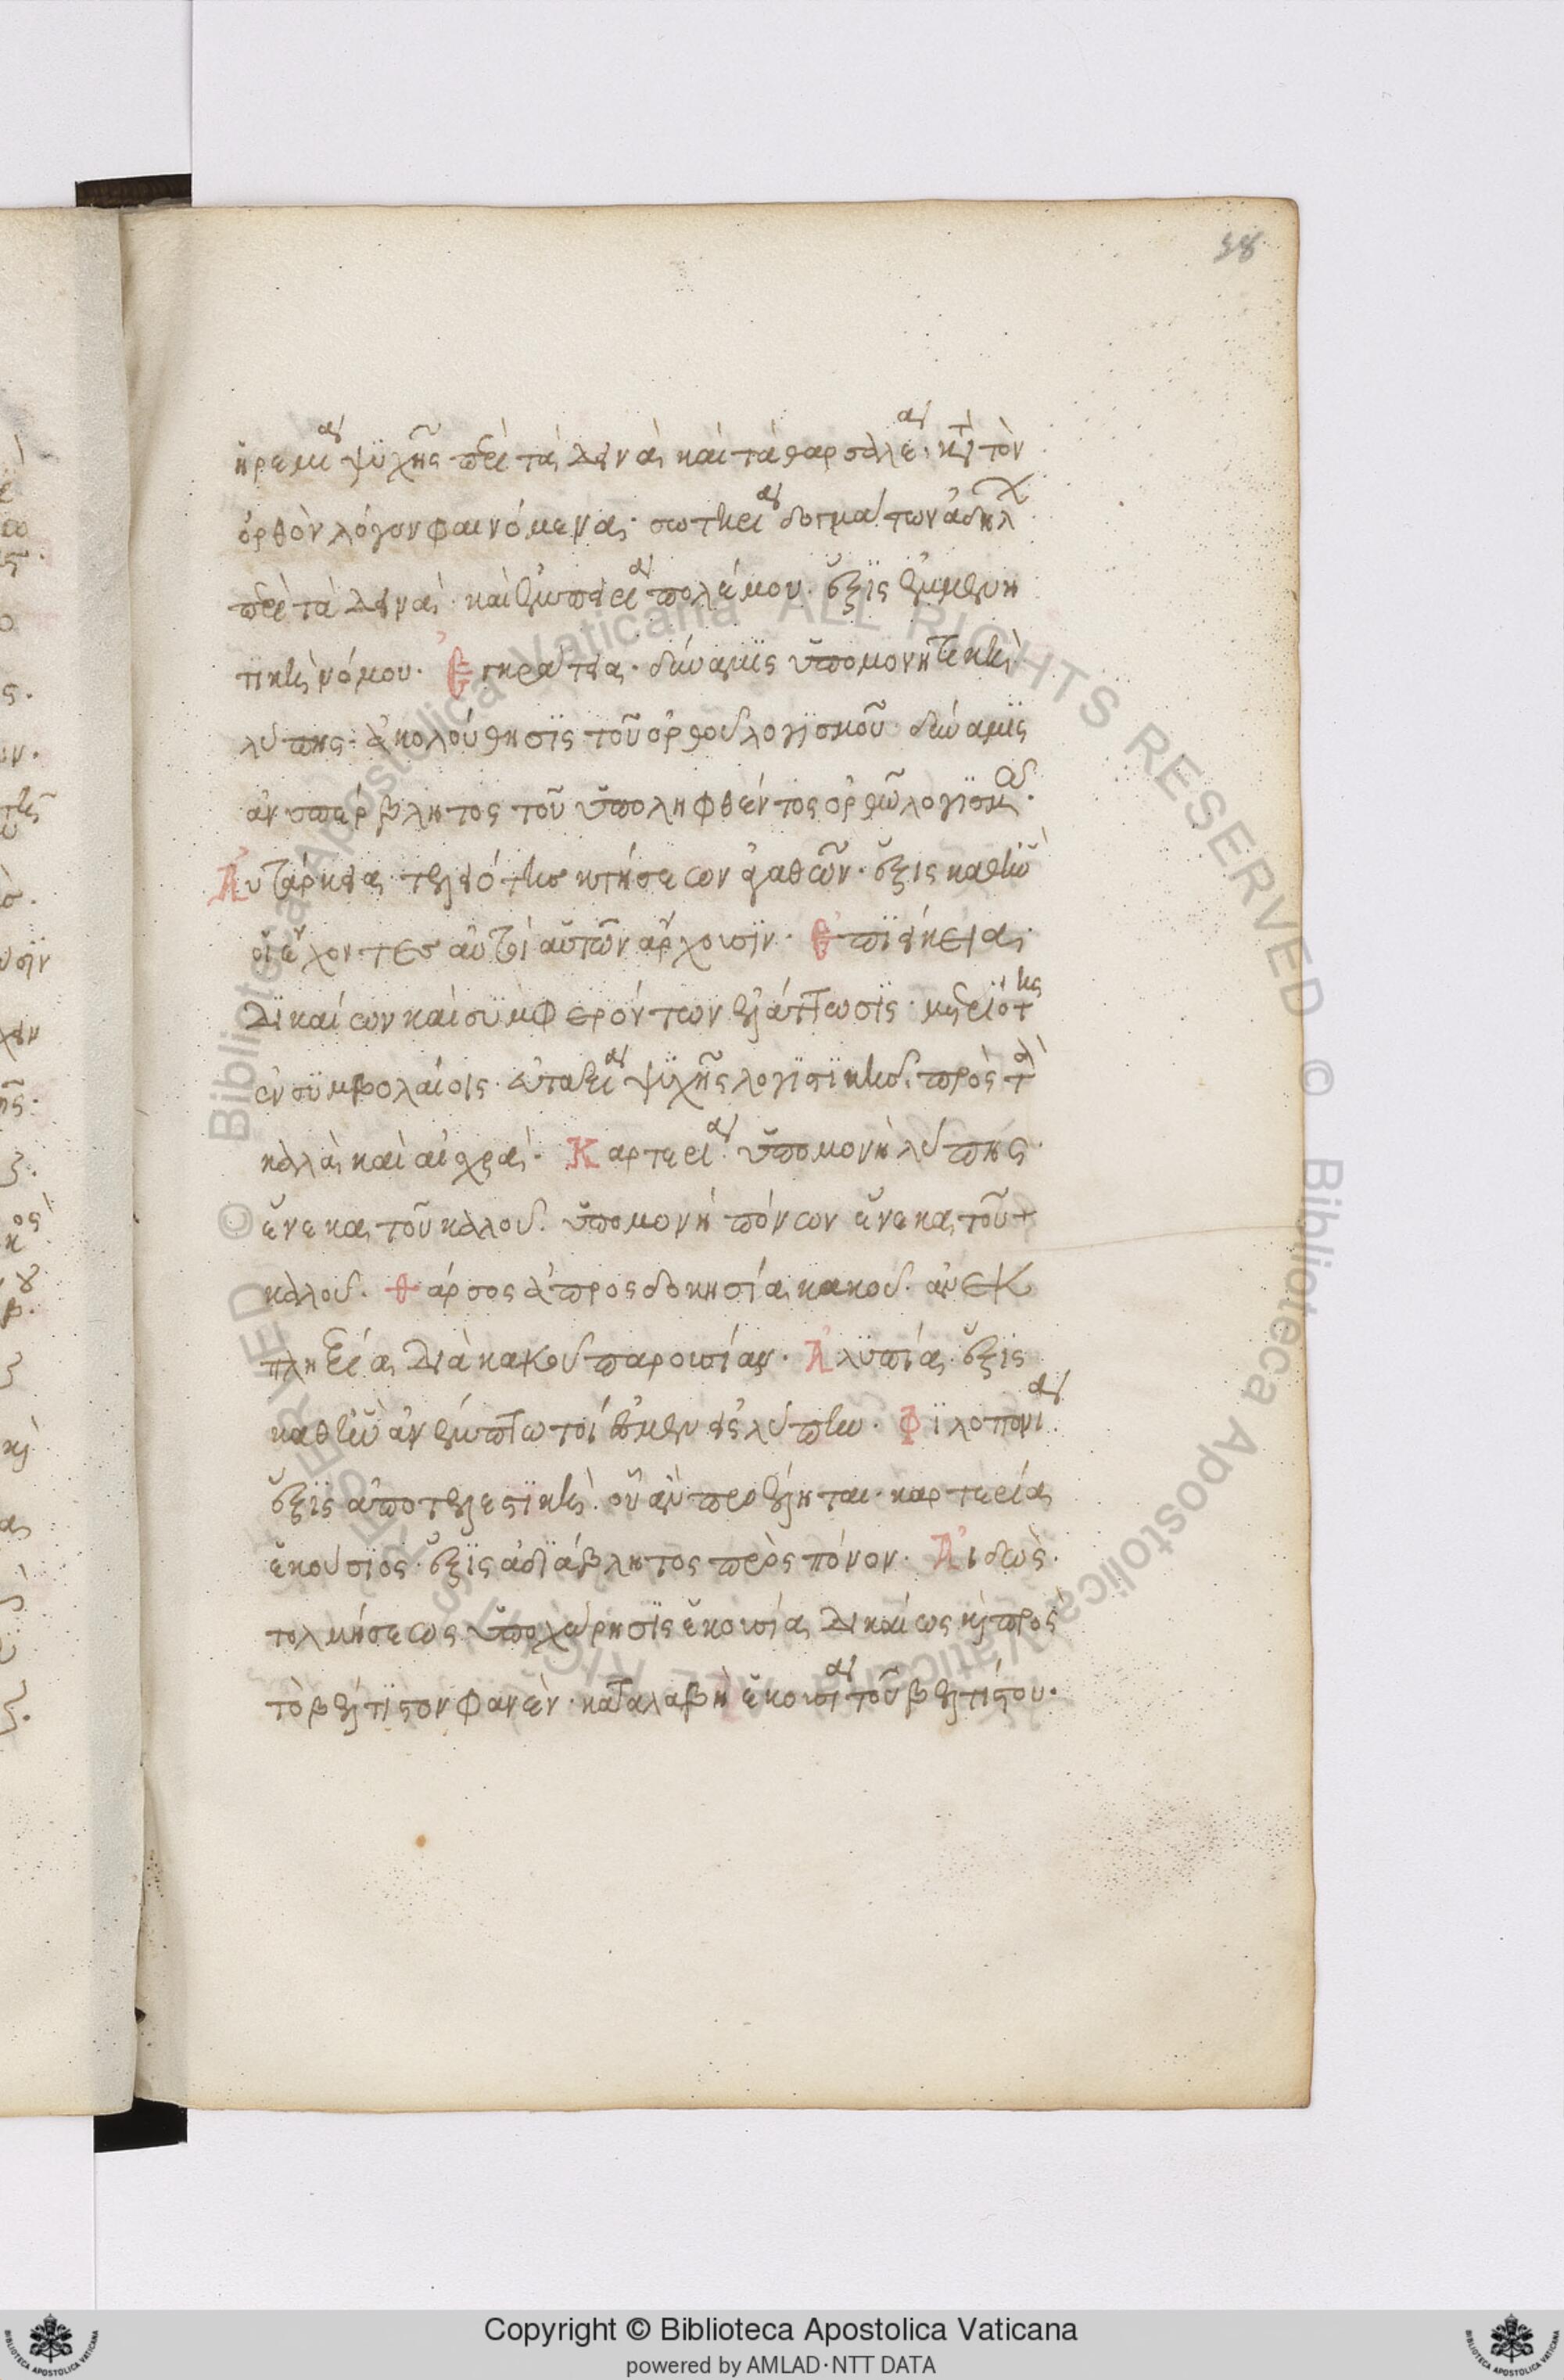 38
ἠρεμία ψυχῆς περὶ τὰ δεινὰ καὶ τὰ θαρσαλέα· κατὰ τὸν
ὀρθὸν λόγον φαινόμενα· σωτηρία δογμάτων ἀδήλων
περὶ τὰ δεινὰ· καὶ ἐμπειρία πολέμου· ἕξις ἐμμενη
τικὴ νόμου· Ἐγκράτεια· δύναμις ὑπομονητικὴ
λύπης· ἀκολούθησις τοῦ ὀρθοῦ λογισμοῦ· δύναμις
ἀνυπέρβλητος τοῦ ὑποληφθέντος ὀρθῶ λογισμοῦ·
Αὐτάρκεια τελειότης κτήσεων ἀγαθῶν· ἕξις καθ' ἣν
οἱ ἔχοντες αὐτοὶ αὑτῶν ἄρχουσιν· Ἐπιείκεια·
δικαίων καὶ συμφερόντων ἐλάττωσις· μετριότης
ἐν συμβολαίοις· εὐταξία ψυχῆς λογιστικῆς· πρὸς τὰ
καλὰ καὶ αἰσχρά· Καρτερία· ὑπομονὴ λύπης·
ἕνεκα τοῦ καλοῦ· ὑπομονὴ πόνων ἕνεκα τοῦ
καλοῦ· Θάρσος ἀπροσδοκησία κακοῦ· ἀνεκ
πληξία διὰ κακοῦ παρουσίαν· Ἀλυπία· ἕξις
καθ' ἣν ἀνέμπτωτοί ἐσμεν εἰς λύπην· Φιλοπονία·
ἕξις ἀποτελεστικὴ· οὗ ἂν προέληται· καρτερία
ἑκούσιος· ἕξις ἀδιάβλητος πρὸς πόνον· Αἰδὼς·
τολμήσεως ὑποχώρησις ἑκουσία δικαίως καὶ πρὸς
τὸ βέλτιστον φανέν· καταλαβὴ ἑκουσία τοῦ βελτίστου·
© Biblioteca Apostolica Vaticana ALL RIGHTS RESERVED
Copyright © Biblioteca Apostolica Vaticana
powered by AMLAD·NTT DATA